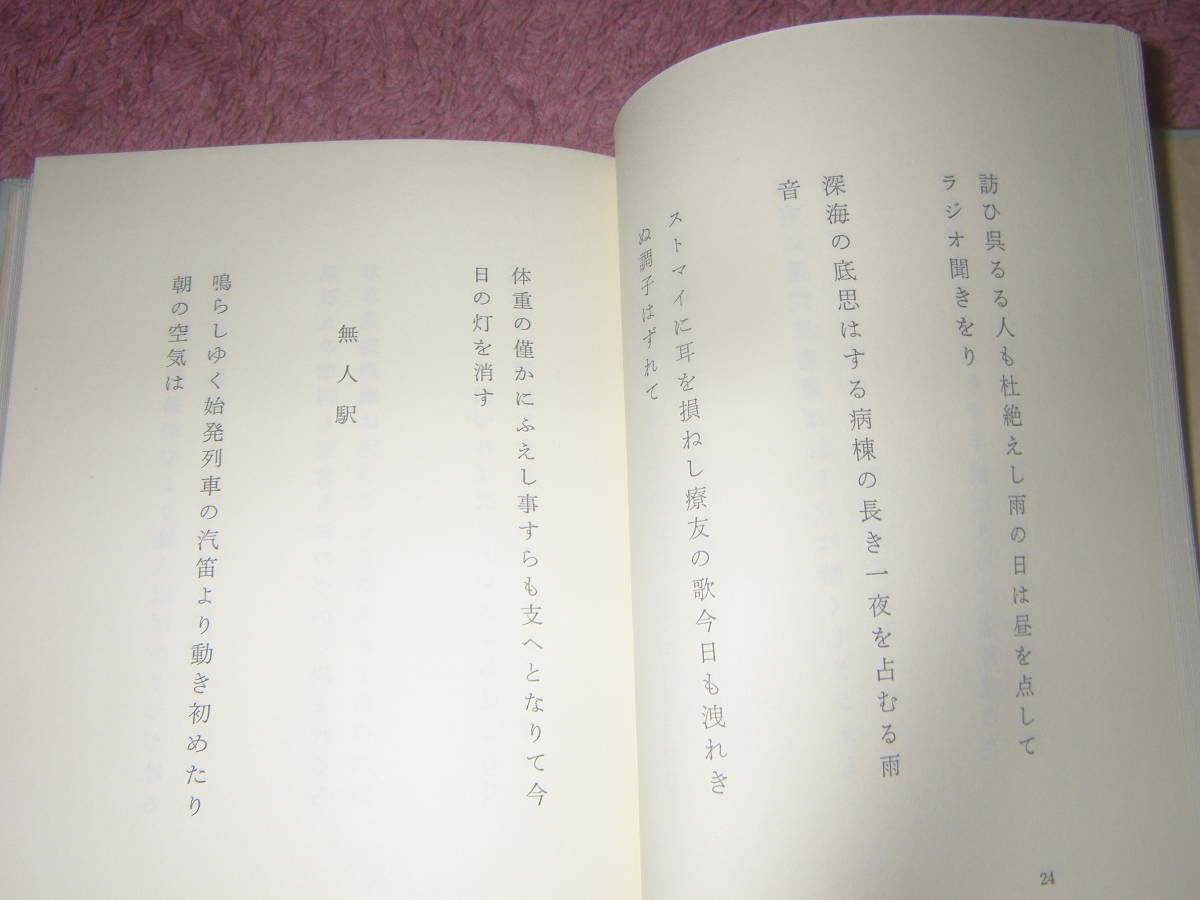 訪ひ呉るる人も杜絶えし雨の日は昼を点して
ラジオ聞きをり
深海の底思はする病棟の長き一夜を占むる雨
音
ストマイに耳を損ねし療友の歌今日も洩れき
ぬ調子はずれて
24
体重の僅かにふえし事すらも支へとなりて今
日の灯を消す
無人駅
鳴らしゆく始発列車の汽笛より動き初めたり
朝の空気は